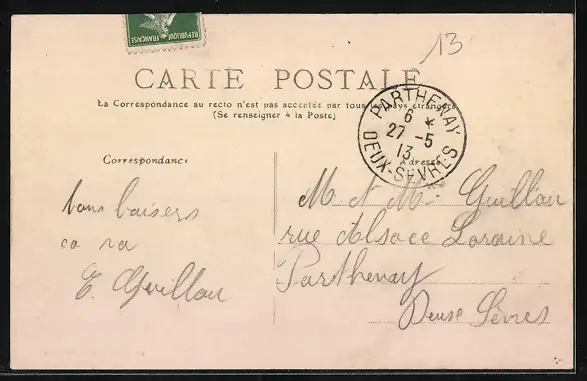 REPUBLIQUE FRANÇAISE
13
CARTE POSTALE
La Correspondance au recto n'est pas acceptée par tous les pays étrangers
(Se renseigner à la Poste)
PARTHENAY
6 *
27 -5
13
DEUX-SEVRES
Correspondance
Adresse
bons baisers
ca va
E. Guillau
M et Me Guillau
rue Alsace Loraine
Parthenay
Deuse Sèvres